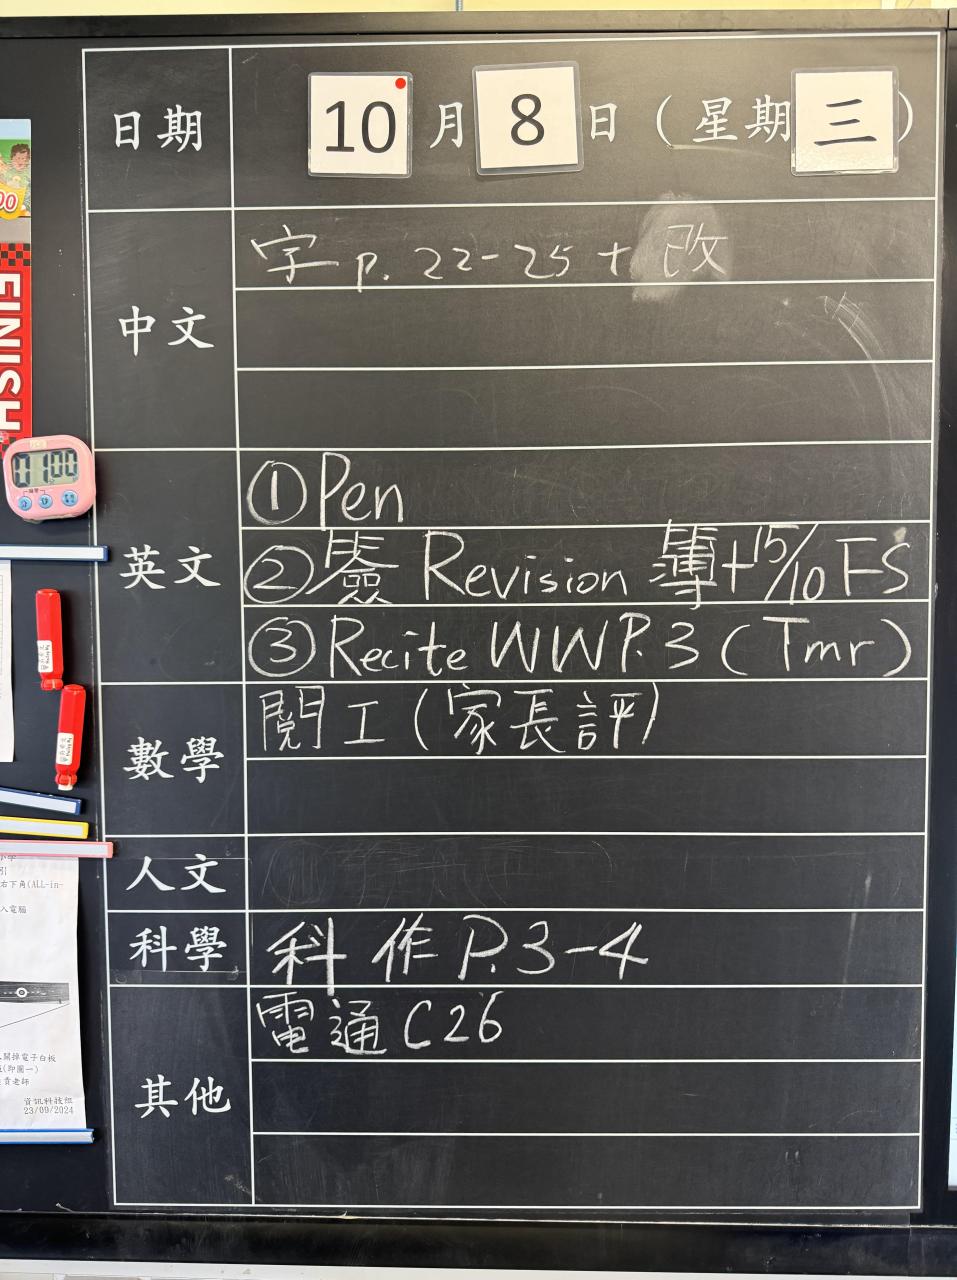 日期 10 月 8 日 (星期 三)
中文 字 P. 22-25 + 改
英文 ① Pen
② 簽 Revision 簿 + 15/10 FS
③ Recite WW P. 3 (Tmr)
數學 閱工 (家長評)
人文
科學 科作 P. 3-4
其他 電通 C26
FINISH
01 00
右下角(ALL-in-
入電腦
關掉電子白板
(即圖一)
責老師
資訊科技組
23/09/2024